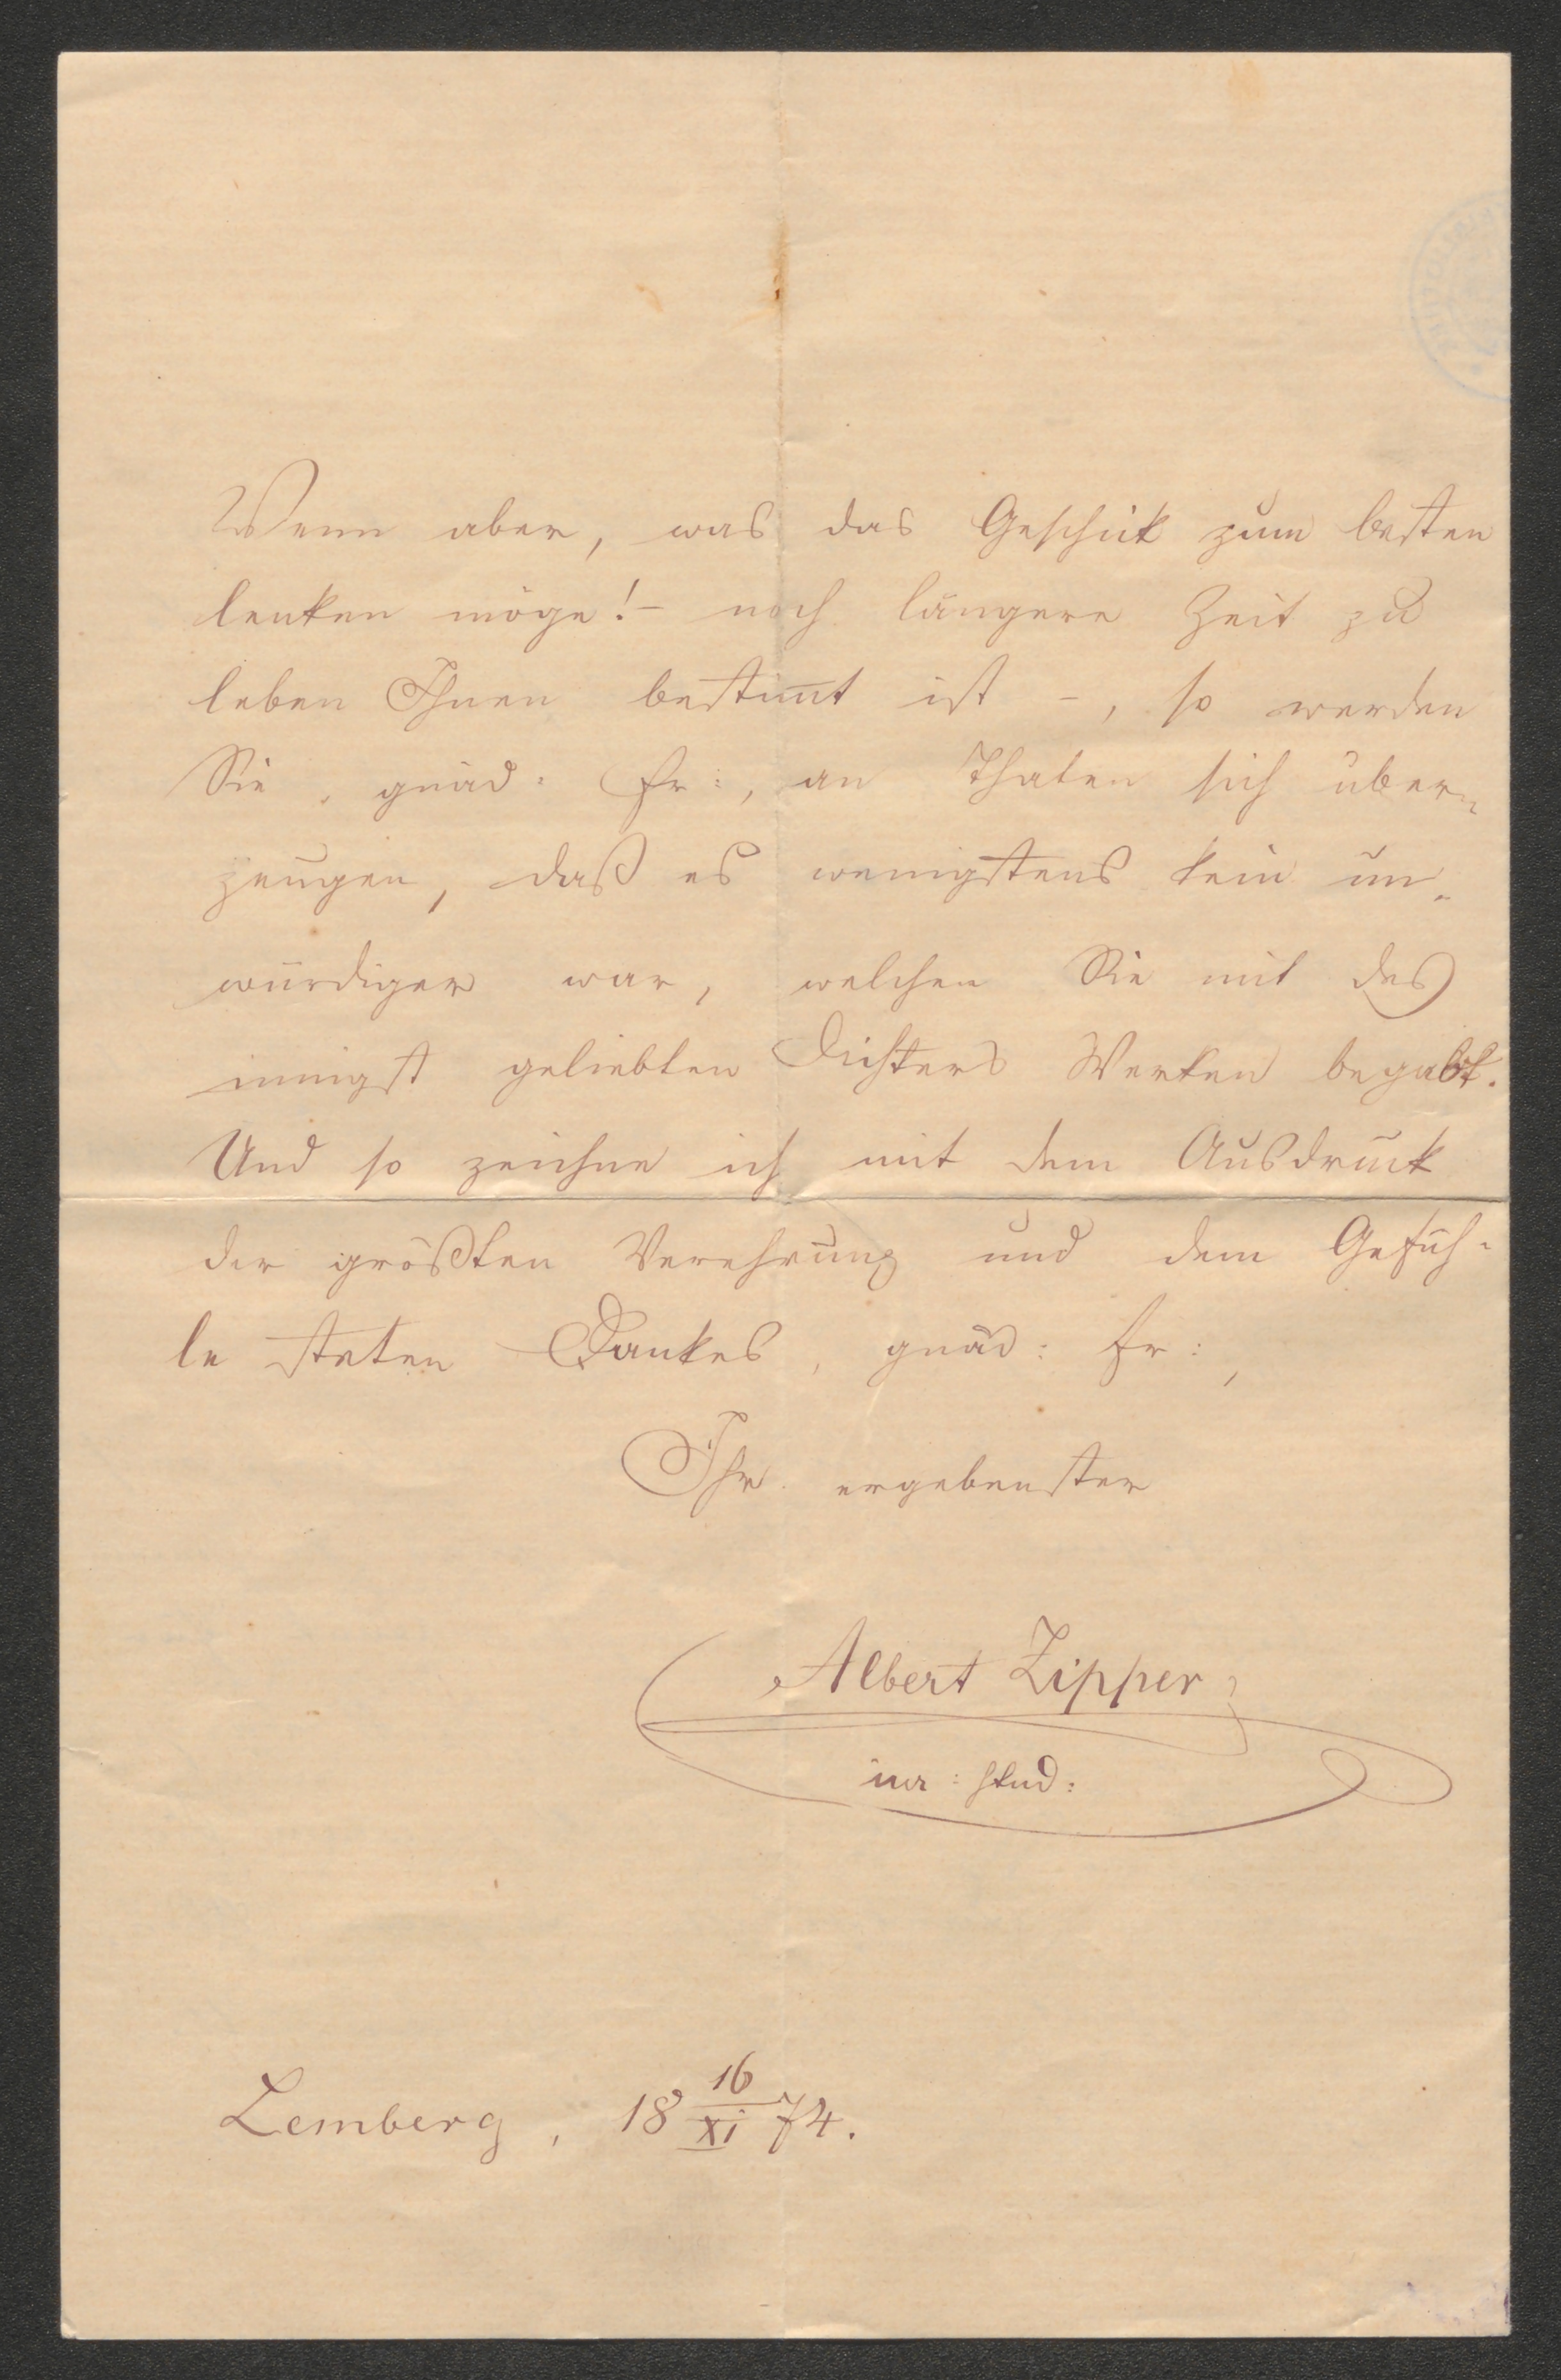 Wenn aber, was das Geschick zum besten
lenken möge! – noch längere Zeit zu
leben Ihnen bestim̅t ist –, so werden
Sie, gnäd: Fr:, an Thaten sich über-
zeugen, daß es wenigstens kein un-
würdiger war, welchen Sie mit des
innigst geliebten Dichters Werken begabt.
Und so zeichne ich mit dem Ausdruck
der größten Verehrung und dem Gefüh-
le steten Dankes, gnäd: Fr:,
Ihr ergebenster
Albert Zipper
iur: stud:
Lemberg, 18 16/XI 74.